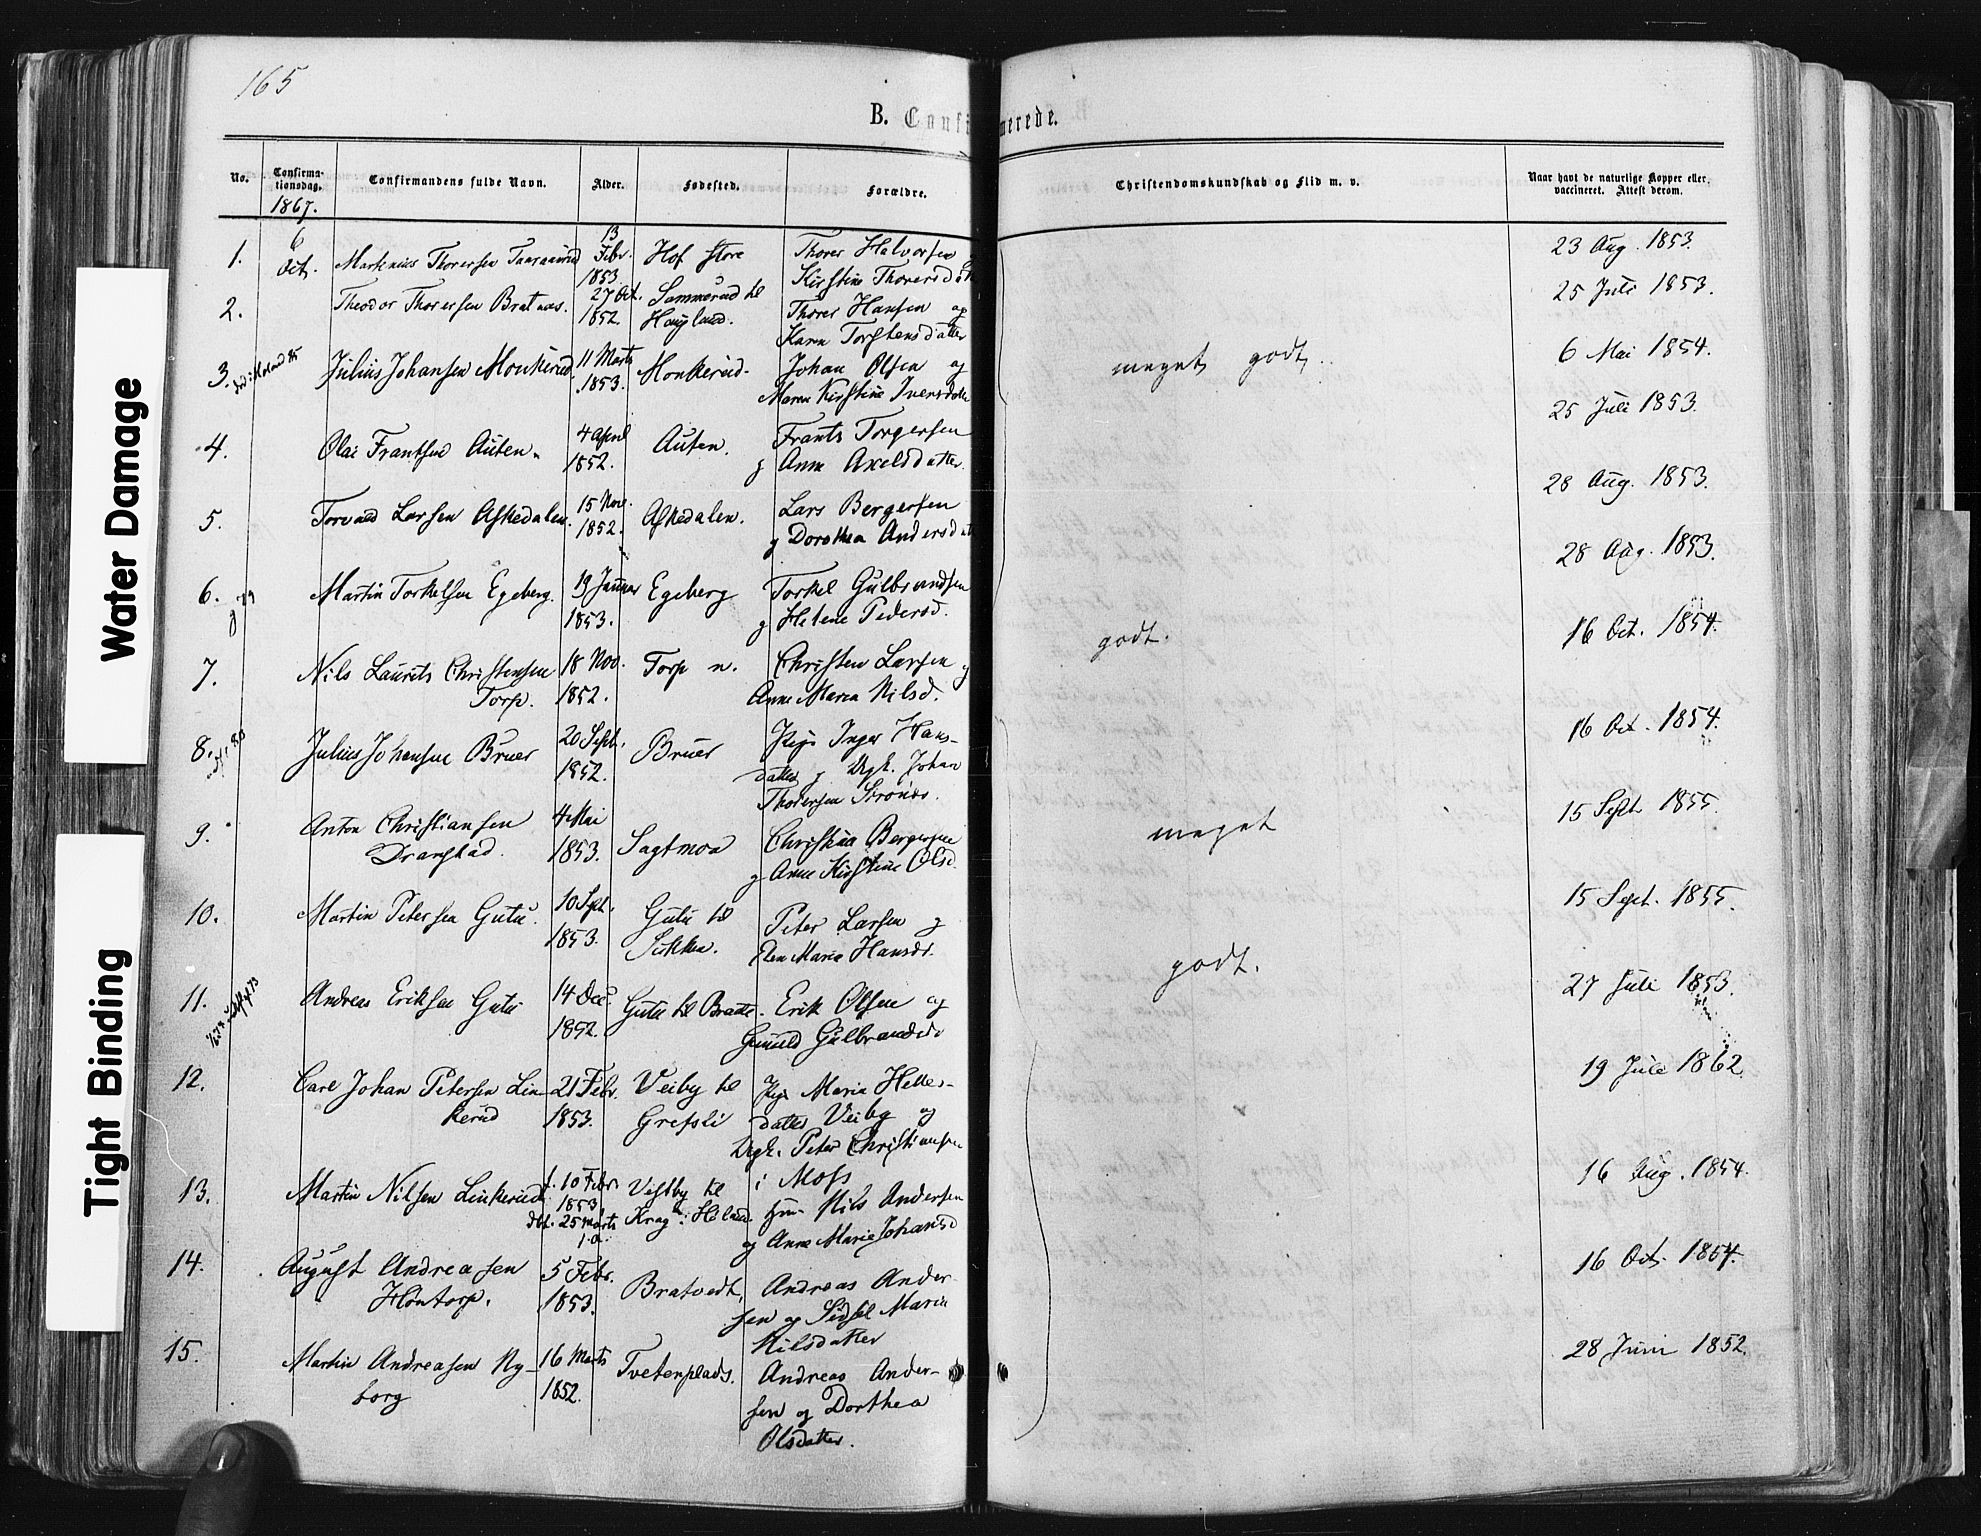 165
B. Confirmerede.
No.
Confirma-
tionsdag.
1867.
Confirmandens fulde Navn.
Alder.
Fødested.
Forældre.
Christendomskundskab og Flid m. v.
Naar havt de naturlige Kopper eller
vaccineret. Attest derom.
1.
6
Oct.
Martinius Thoresen
13
Febr.
1853.
Hof store
Thorer Halvorsen
Kirstine Thoresdat
23 Aug. 1853.
2.
Theodor Thoresen Brataas.
27 Oct.
1852.
Sammerud til
Haugland.
Thorer Hansen og
Karen Torstensdatter
25 Juli 1853.
3.
Julius Johansen Monkerud
11 Marts
1853.
Monkerud.
Johan Olsen og
Maren Kirstine Iversdatter
meget godt.
6 Mai 1854.
4.
Olai Frantsen Auten.
4 April
1852.
Auten.
Frants Torgersen
g Anne Axelsdatter.
25 Juli 1853.
5.
Torvald Larsen Askedalen.
15 Nov.
1852.
Askedalen.
Lars Bergersen
g Dorothea Andersdat
28 Aug. 1853.
6.
g 79
Martin Torkelsen Egeberg.
19 Januar
1853.
Egeberg
Torkel Gulbrandsen
g Helene Pedersd.
28 Aug. 1853.
7.
Nils Laurits Christensen
Torp.
18 Nov.
1852.
Torp n.
Christen Larsen g
Anne Maria Nilsd.
godt.
16 Oct. 1854.
8.
Julius Johansen Bruer
20 Sept.
1852.
Bruer
Pige Inger Hans-
datter g Ungk. Johan
Thoresen
16 Oct. 1854.
9.
Anton Christiansen
Dranstad.
4 Mai
1853.
Sagtmoa
Christian Bergersen
g Anne Kirstine Olsd.
meget
15 Sept 1855.
10.
Martin Petersen Gutu.
10 Spt.
1853.
Gutu til
Sikken.
Peter Larsen g
Elen Maria Hansdr.
15 Sept. 1855.
11.
Andreas Eriksen Gutu
14 Dec.
1852.
Gutu til Braate.
Erik Olsen og
Gunild Gulbrandsd
godt.
27 Juli 1853.
12.
Carl Johan Petersen Lin-
kerud
21 Febr.
1853.
Veiby til
Grefsli
Pige Maria Helles-
datter Veiby og
Ungk. Peter Christiansen
i Moss
19 Juli 1862.
13.
Martin Nilsen Linkerud
f. 10 Febr
1853
dbt. 25 Marts
s.a.
Vestby til
Krag i Høland.
Hm. Nils Andersen
og Anne Marie Johansd
16 Aug. 1854.
14.
August Andreasen
Hontorp.
5 Febr.
1853.
Bratvedt,
Andreas Ander-
sen og Sidsel Maria
Nilsdatter
16 Oct. 1854.
15.
Martin Andreasen Ny-
borg
16 Marts
1852.
Tvetenplads.
Andreas Ander-
sen og Dorthea
Olsdatter.
28 Juni 1852.
Water Damage
Tight Binding